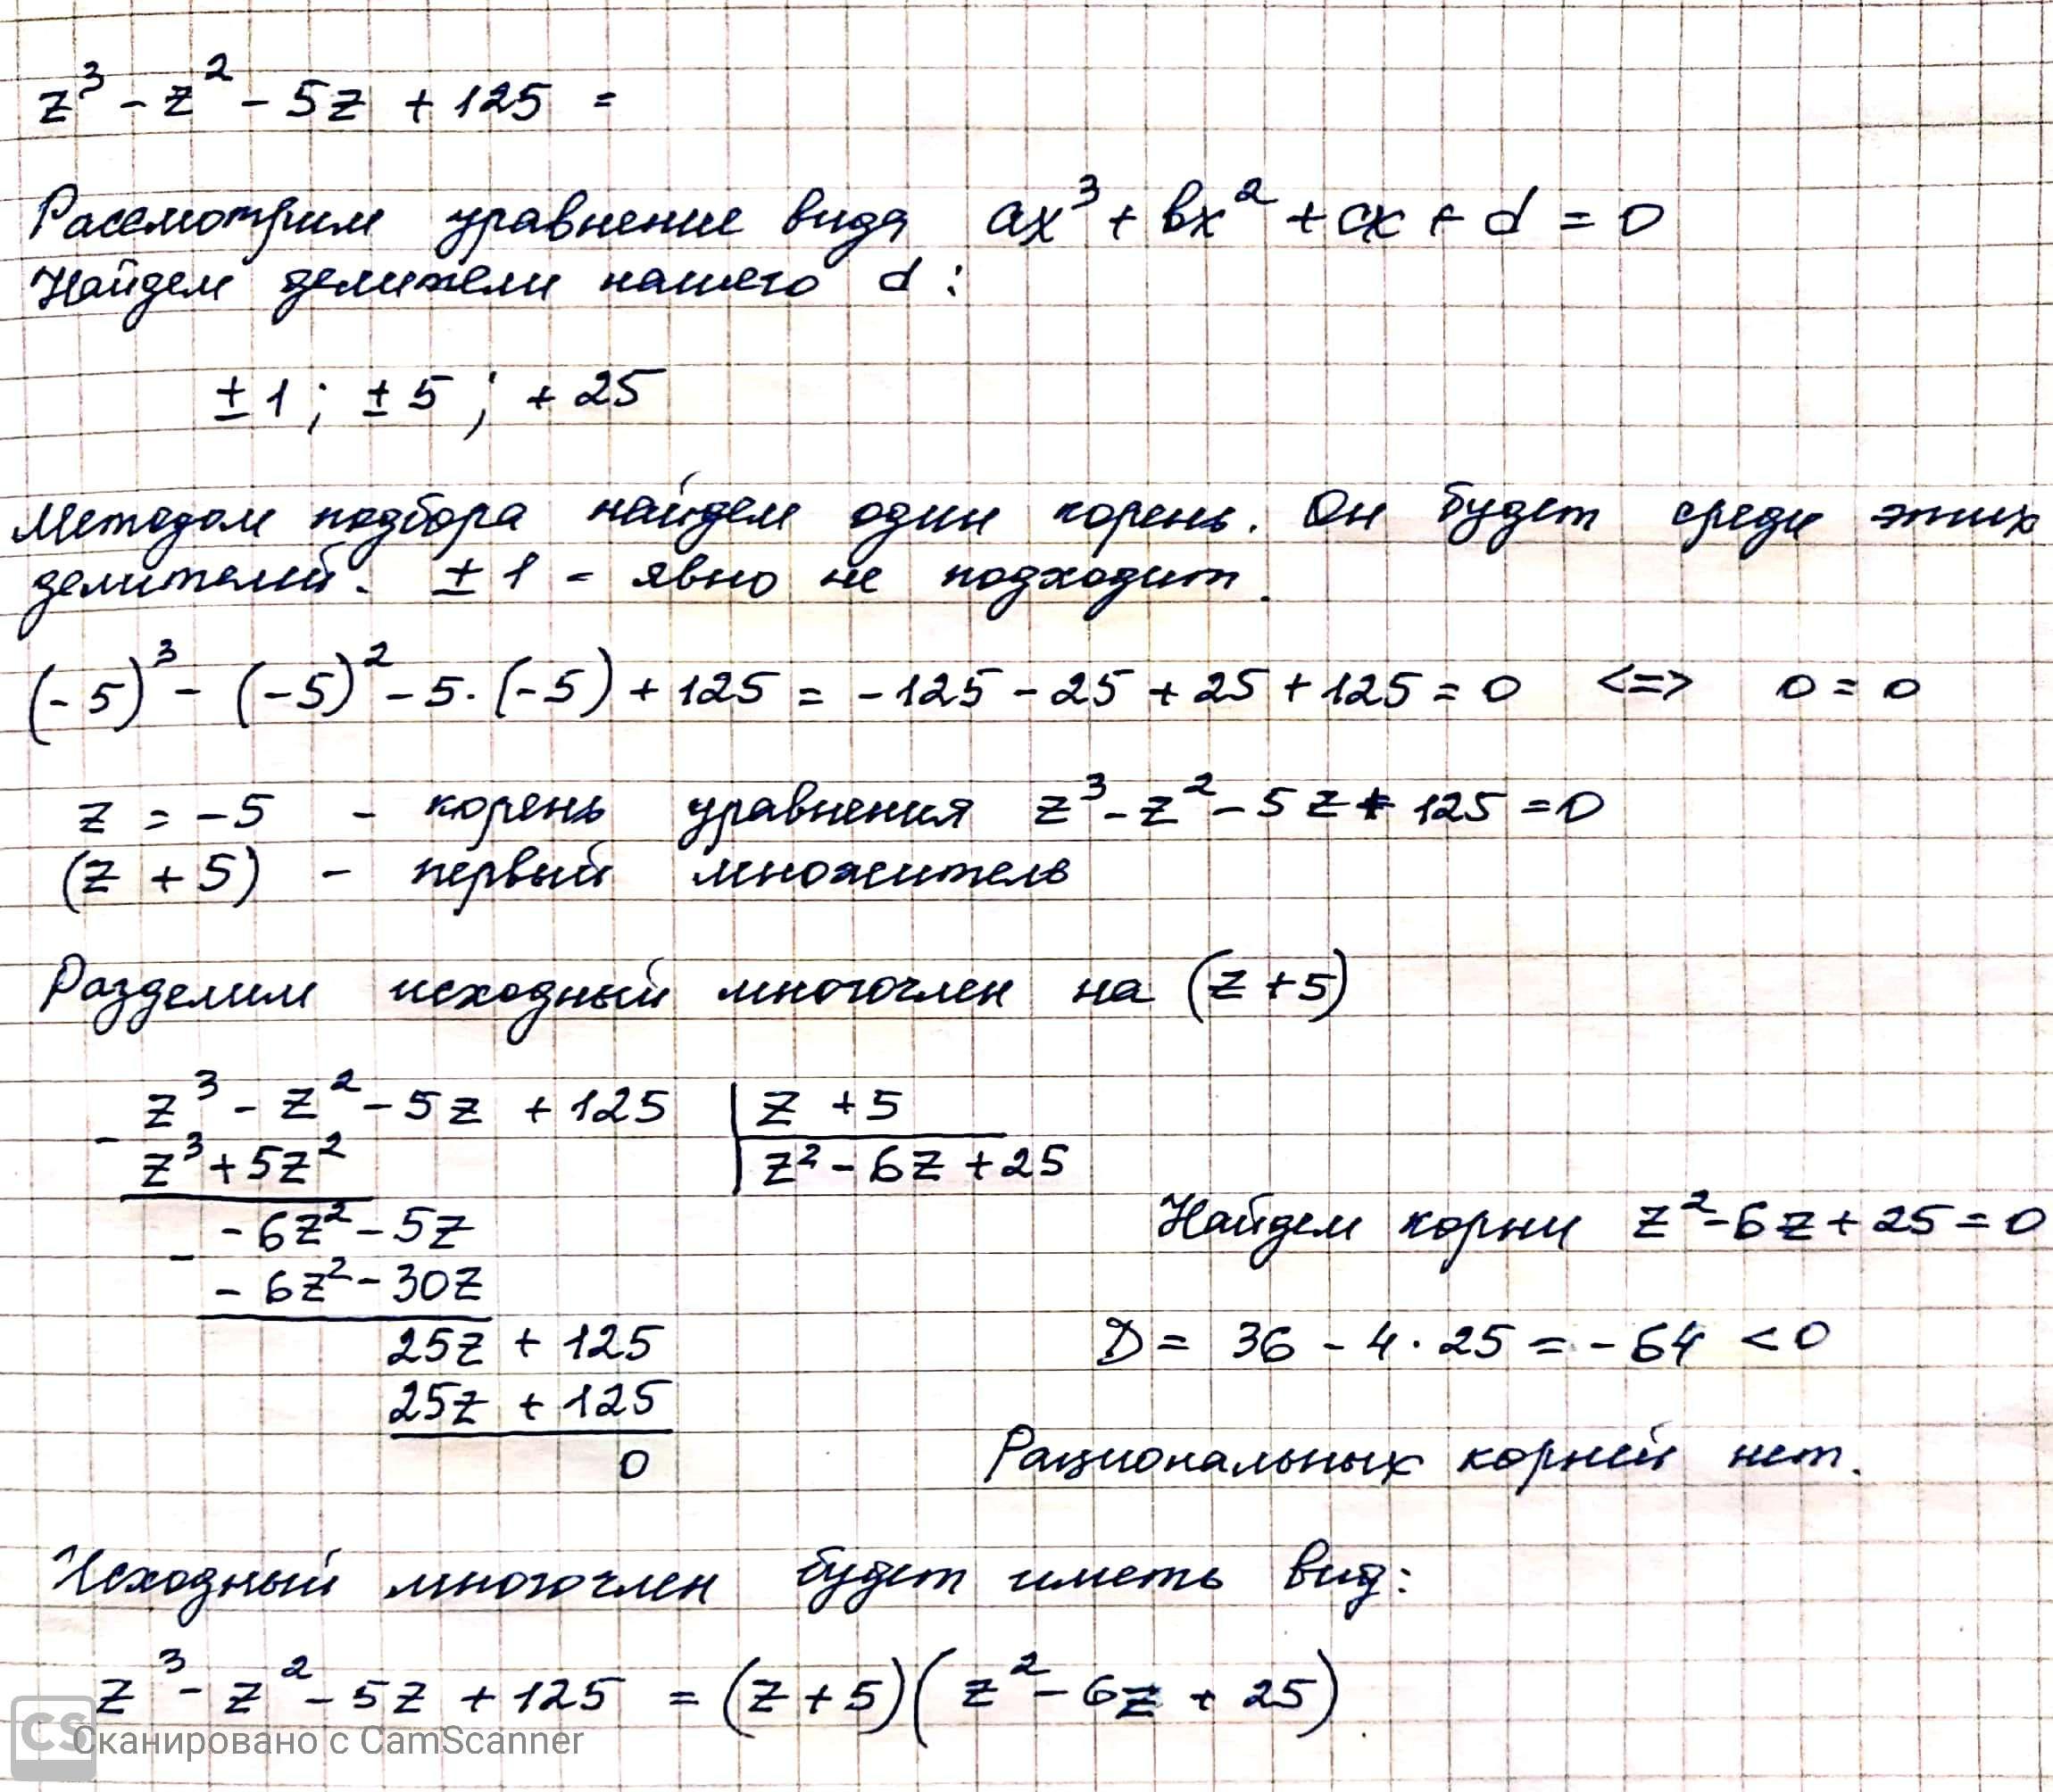 z³ - z² - 5z + 125 =
Рассмотрим уравнение вида ax³ + bx² + cx + d = 0
Найдем делители нашего d:
±1; ±5; +25
Методом подбора найдем один корень. Он будет среди этих
делителей. ±1 - явно не подходит.
(-5)³ - (-5)² - 5·(-5) + 125 = -125 - 25 + 25 + 125 = 0 <=> 0 = 0
z = -5 - корень уравнения z³ - z² - 5z + 125 = 0
(z + 5) - первый множитель
Разделим исходный многочлен на (z + 5)
z³ - z² - 5z + 125 | z + 5
- z³ + 5z² | z² - 6z + 25
- 6z² - 5z
- - 6z² - 30z
25z + 125
25z + 125
0
Найдем корни z² - 6z + 25 = 0
D = 36 - 4·25 = -64 < 0
Рациональных корней нет.
Исходный многочлен будет иметь вид:
z³ - z² - 5z + 125 = (z + 5)(z² - 6z + 25)
CS Сканировано с CamScanner